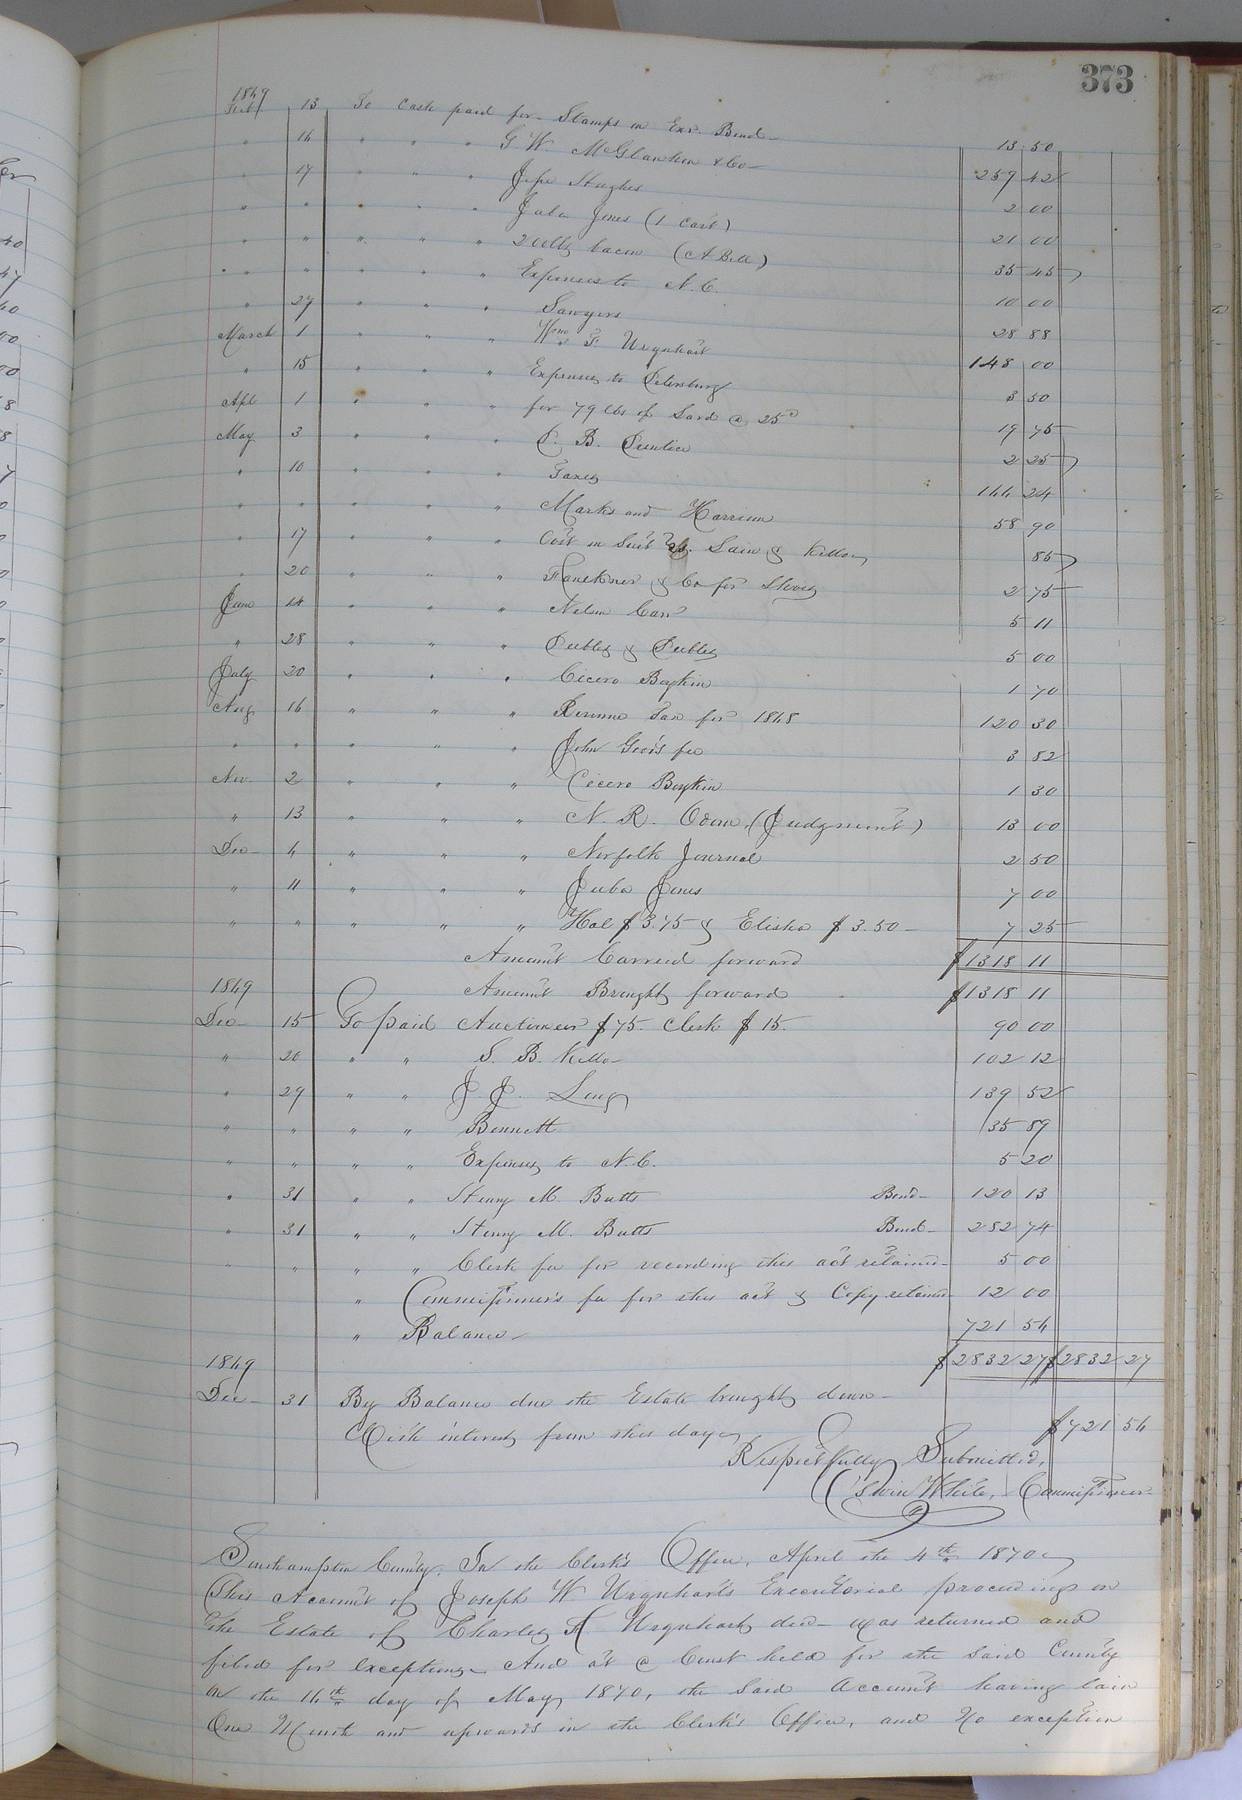 373
1869
Feb. 13 To Cash paid for Stamps on Exr. Bond 13 50
" 16 " " " G W. McGlauhon & Co 259 42
" 17 " " " Jesse Hughes 2 00
" " " " " Juba Jones (1 Cart) 21 00
" " " " " lbs bacon (A Bell) 35 45
" " " " " Expenses to N. C. 10 00
" 27 " " " Sawyers 28 88
March 1 " " " F Urquhart 148 00
" 15 " " " Expenses to Petersburg 3 50
Apl 1 " " " for 79 lbs of Lard @ 25 19 75
May 3 " " " P. B. Prentice 2 25
" 10 " " " Taxes 166 24
" " " " " Marks and Harrison 58 90
" 17 " " " Cost in Suit vs. Lain & Kello 85
" 20 " " " Faulkner & Co for Shoes 2 75
June 14 " " " Nelson Carr 5 11
" 28 " " " Peebles & Peebles 5 00
July 20 " " " Cicero Boykin 1 70
Aug 16 " " " Revenue Tax for 1868 120 30
" " " " " John Geo's fee 3 52
Nov. 2 " " " Cicero Boykin 1 30
" 13 " " " N. R. Odom, (Judgment) 13 00
Dec 4 " " " Norfolk Journal 2 50
" 11 " " " Juba Jones 7 00
" " " " " Hal $3.75 & Elisha $3.50 7 25
Amount Carried forward $1318 11
1869 Amount Brought forward $1318 11
Dec 15 To paid Auctioneer $75 Clerk $15. 90 00
" 20 " " S. B. Kello 102 12
" 29 " " J. J. Long 139 52
" " " " Bennett 35 89
" " " " Expenses to N. C. 5 20
" 31 " " Henry M. Butts Bond 120 13
" 31 " " Henry M. Butts Bond 252 74
" " " " Clerk fee for recording this act retained 5 00
" Commissioner's fee for this act & Copy retained 12 00
" Balance 721 54
1869 $2832 27 $2832 27
Dec 31 By Balance due the Estate brought down
With interest from this day $721 54
Respectfully Submitted,
White, Commissioner
Southampton County. In the Clerk's Office, April the 4th 1870
This Account of Joseph W Urquhart's Executorial proceedings on
the Estate of Charles F Urquhart dec was returned and
filed for exceptions And at a Court held for the said County
on the 16th day of May, 1870, the said Account having lain
One Month and upwards in the Clerk's Office, and No exception